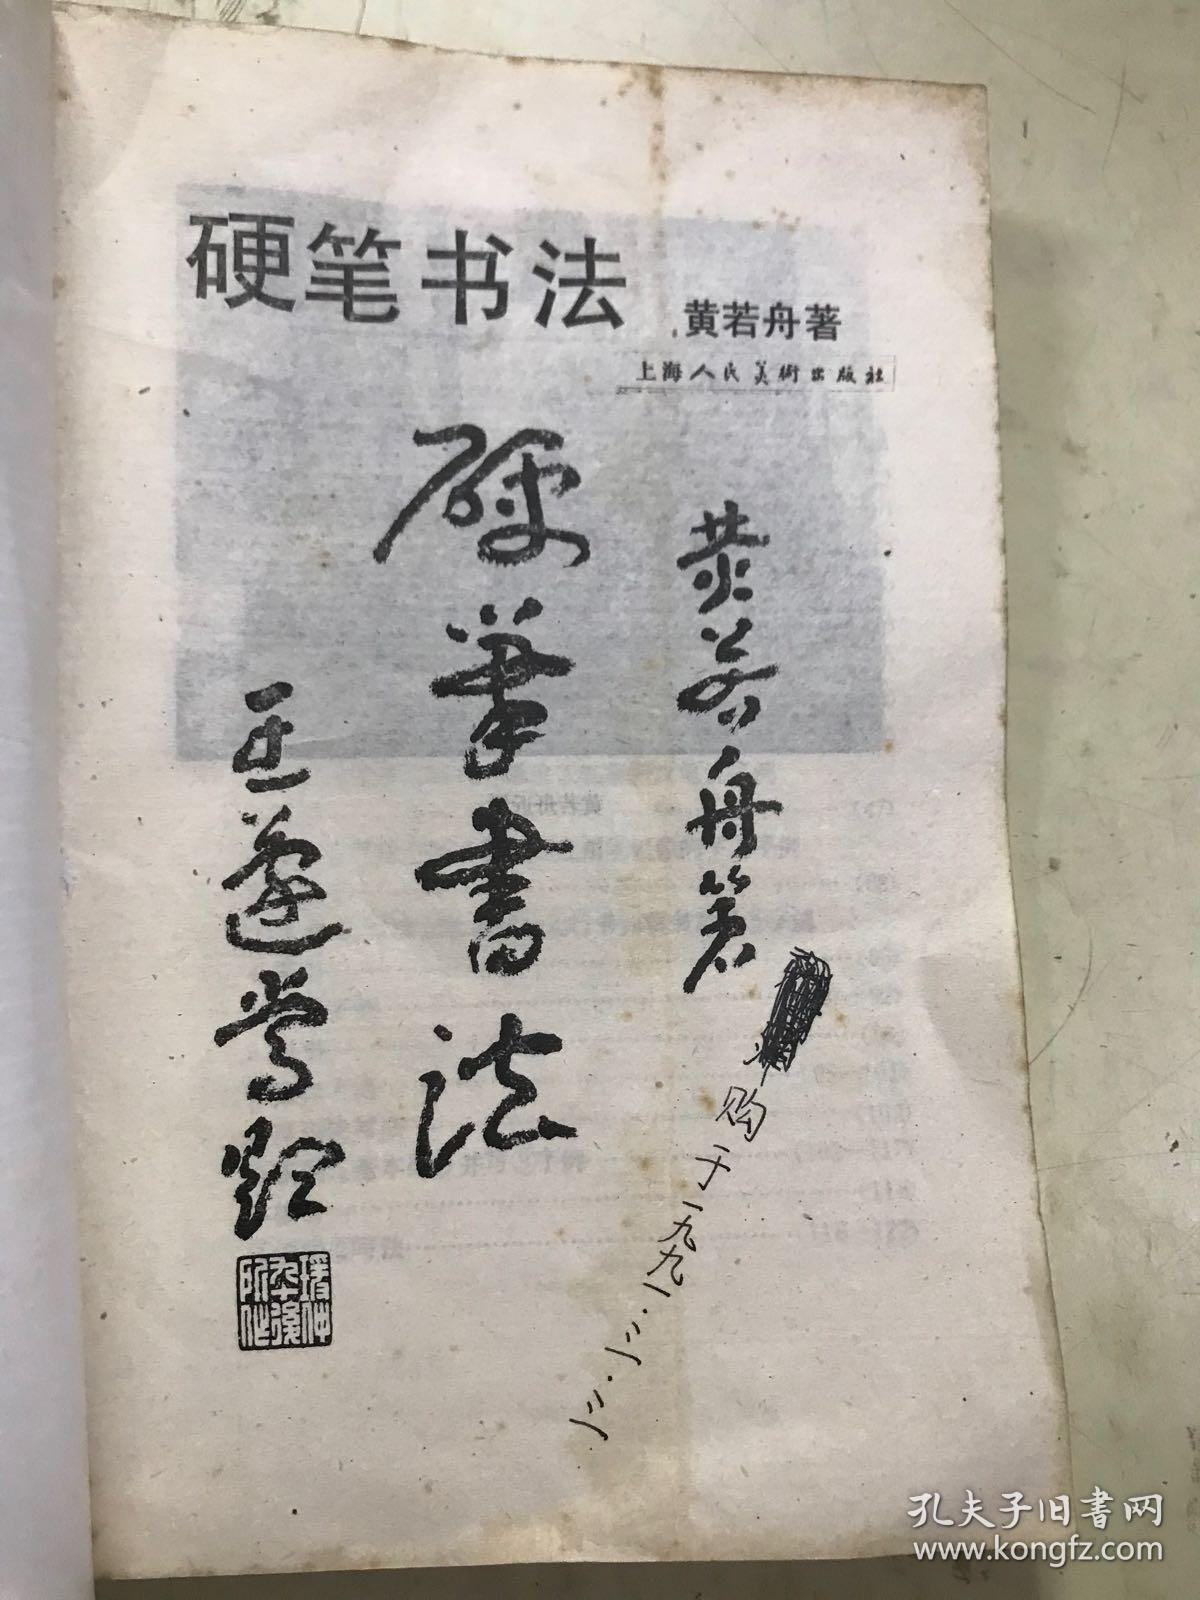 硬笔书法
黄若舟著
上海人民美術出版社
黄若舟著
硬筆書法
王蘧常題
购于一九九一.三.三
孔夫子旧书网
www.kongfz.com